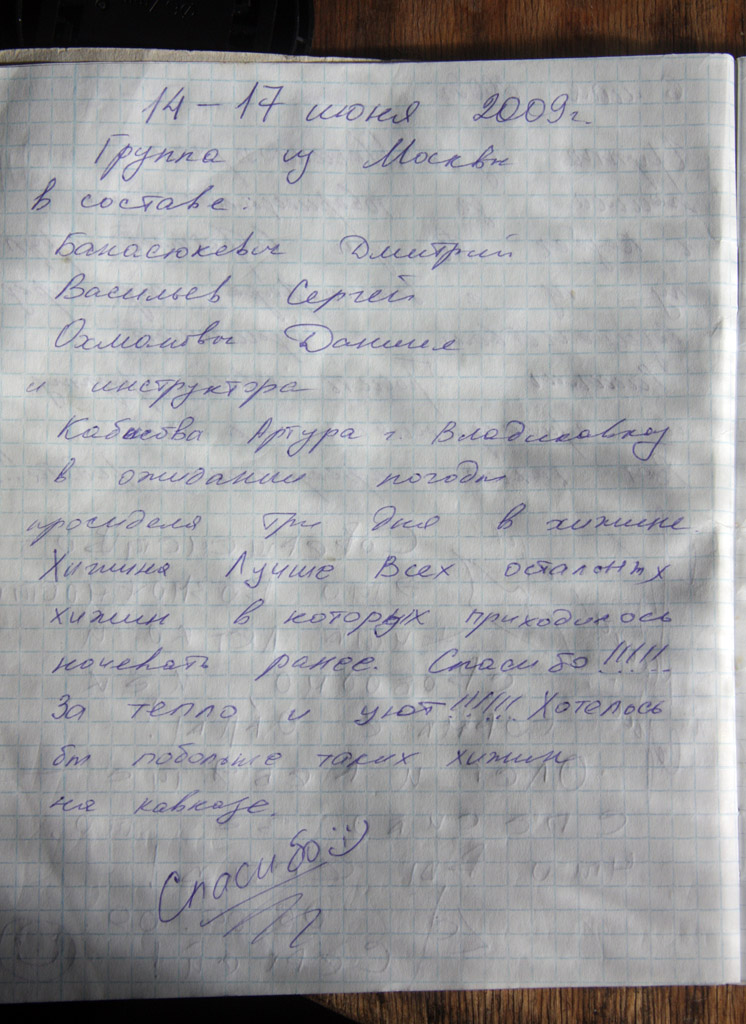 14 – 17 июня 2009г.
Группа из Москвы
в составе:
Банасюкевич Дмитрий
Васильев Сергей
Даниил
и инструктора
Артура г. Владикавказ
в ожидании погоды
просидела три дня в хижине.
Хижина Лучше Всех остальных
хижин в которых приходилось
ночевать ранее. Спасибо!!!!!!
За тепло и уют!!!!!! Хотелось
бы побольше таких хижин
на кавказе.
Спасибо :)